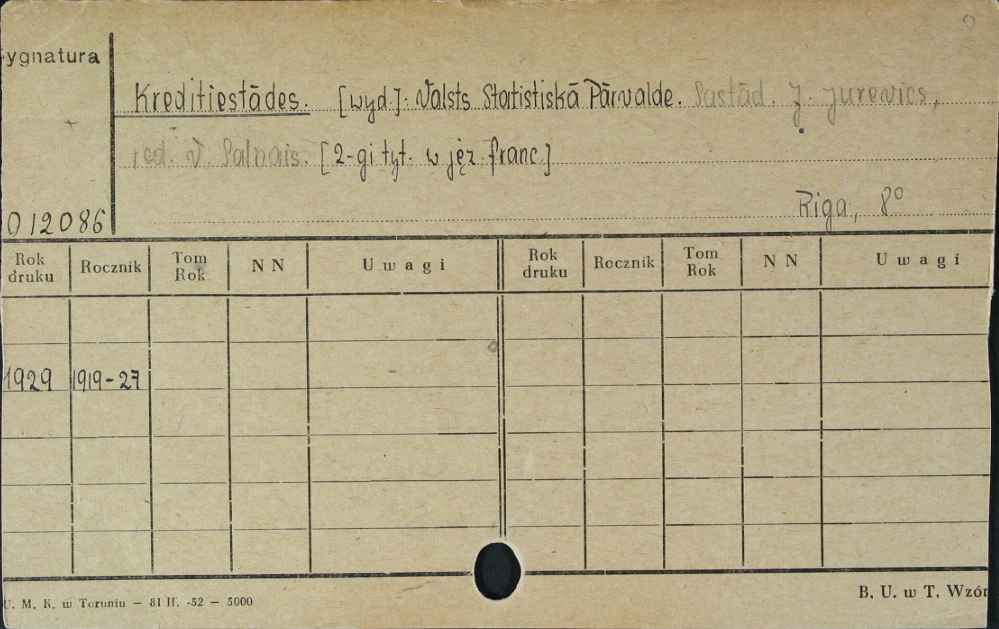 ygnatura
Kreditiestādes. [wyd.]. Valsts Statistiskā Pārvalde. Sastād. J. Jurevics,
red. V. Salnais. [2-gi tyt. w jęz. franc.]
012086
Riga, 8°
Rok druku Rocznik Tom Rok N N Uwagi Rok druku Rocznik Tom Rok N N Uwagi
1929 1919-27
U. M. K. w Toruniu — 81 II. -52 — 5000
B. U. w T. Wzór